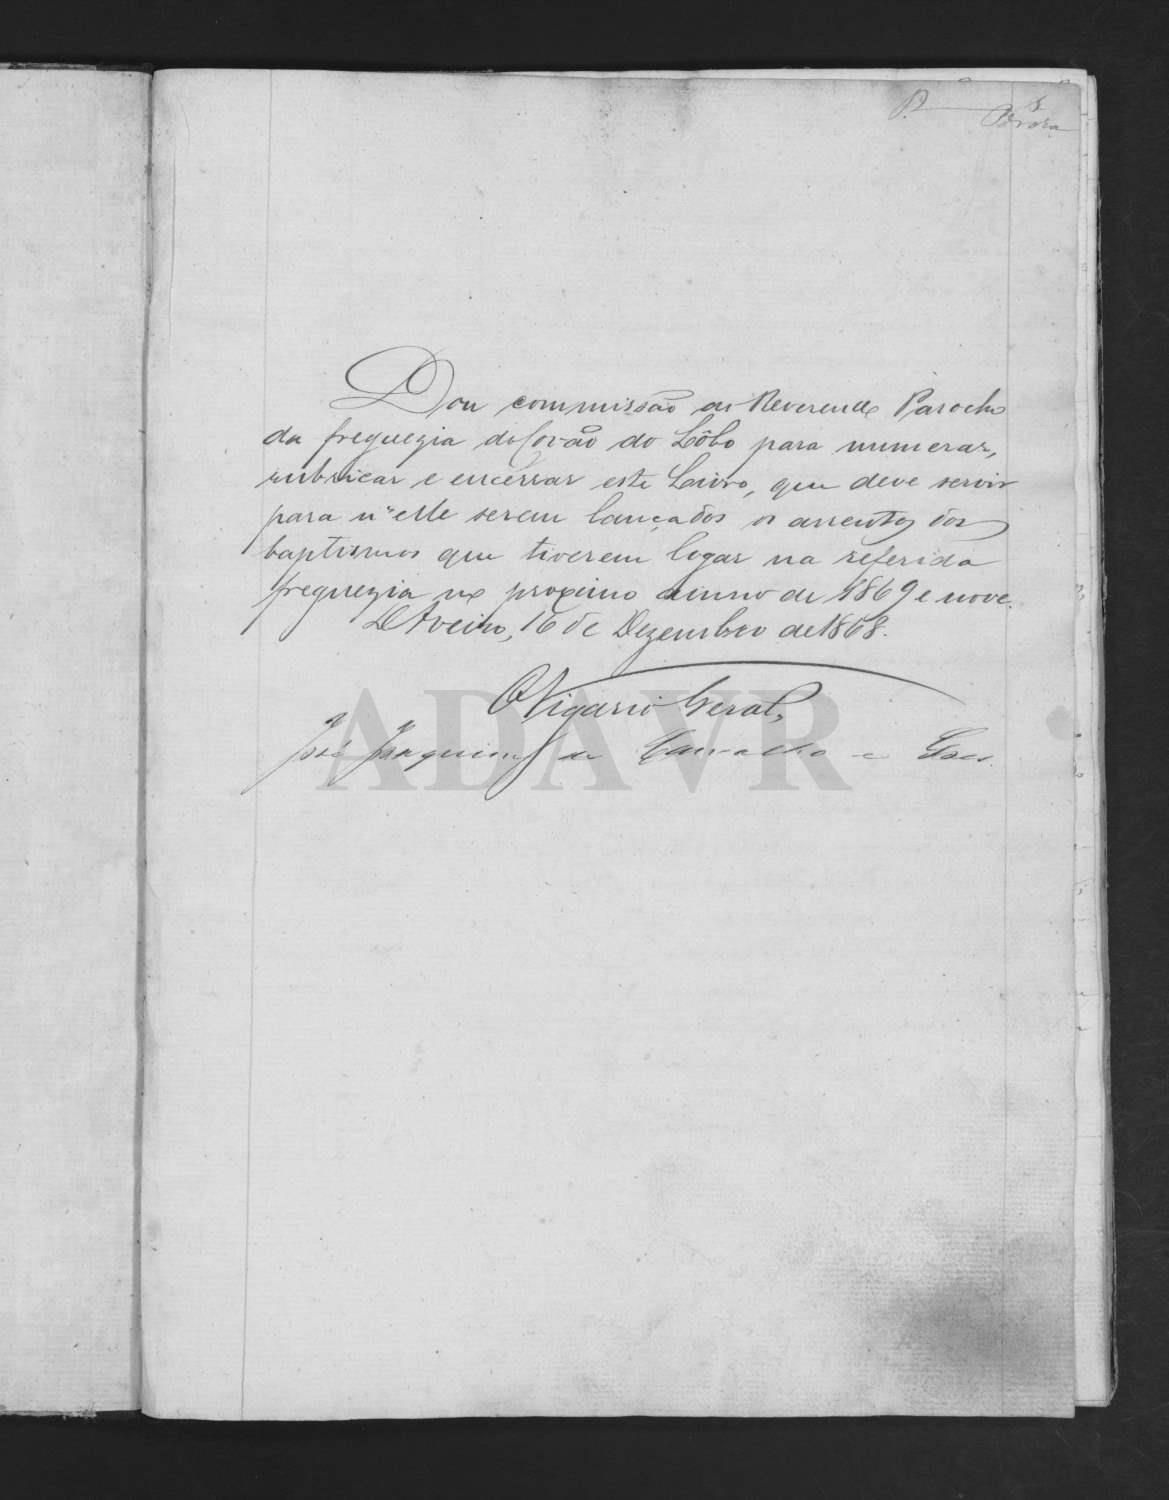 Dou commissão ao Reverendo Parocho
da freguezia do Covão do Lôbo para numerar,
rubricar e encerrar este Livro, que deve servir
para n'elle serem lançados os assentos dos
baptismos que tiverem logar na referida
freguezia no proximo anno de 1869 e nove.
D'Aveiro, 16 de Dezembro de 1868.
O Vigario Geral,
José Joaquim de Carvalho e Goes.
ADAVR